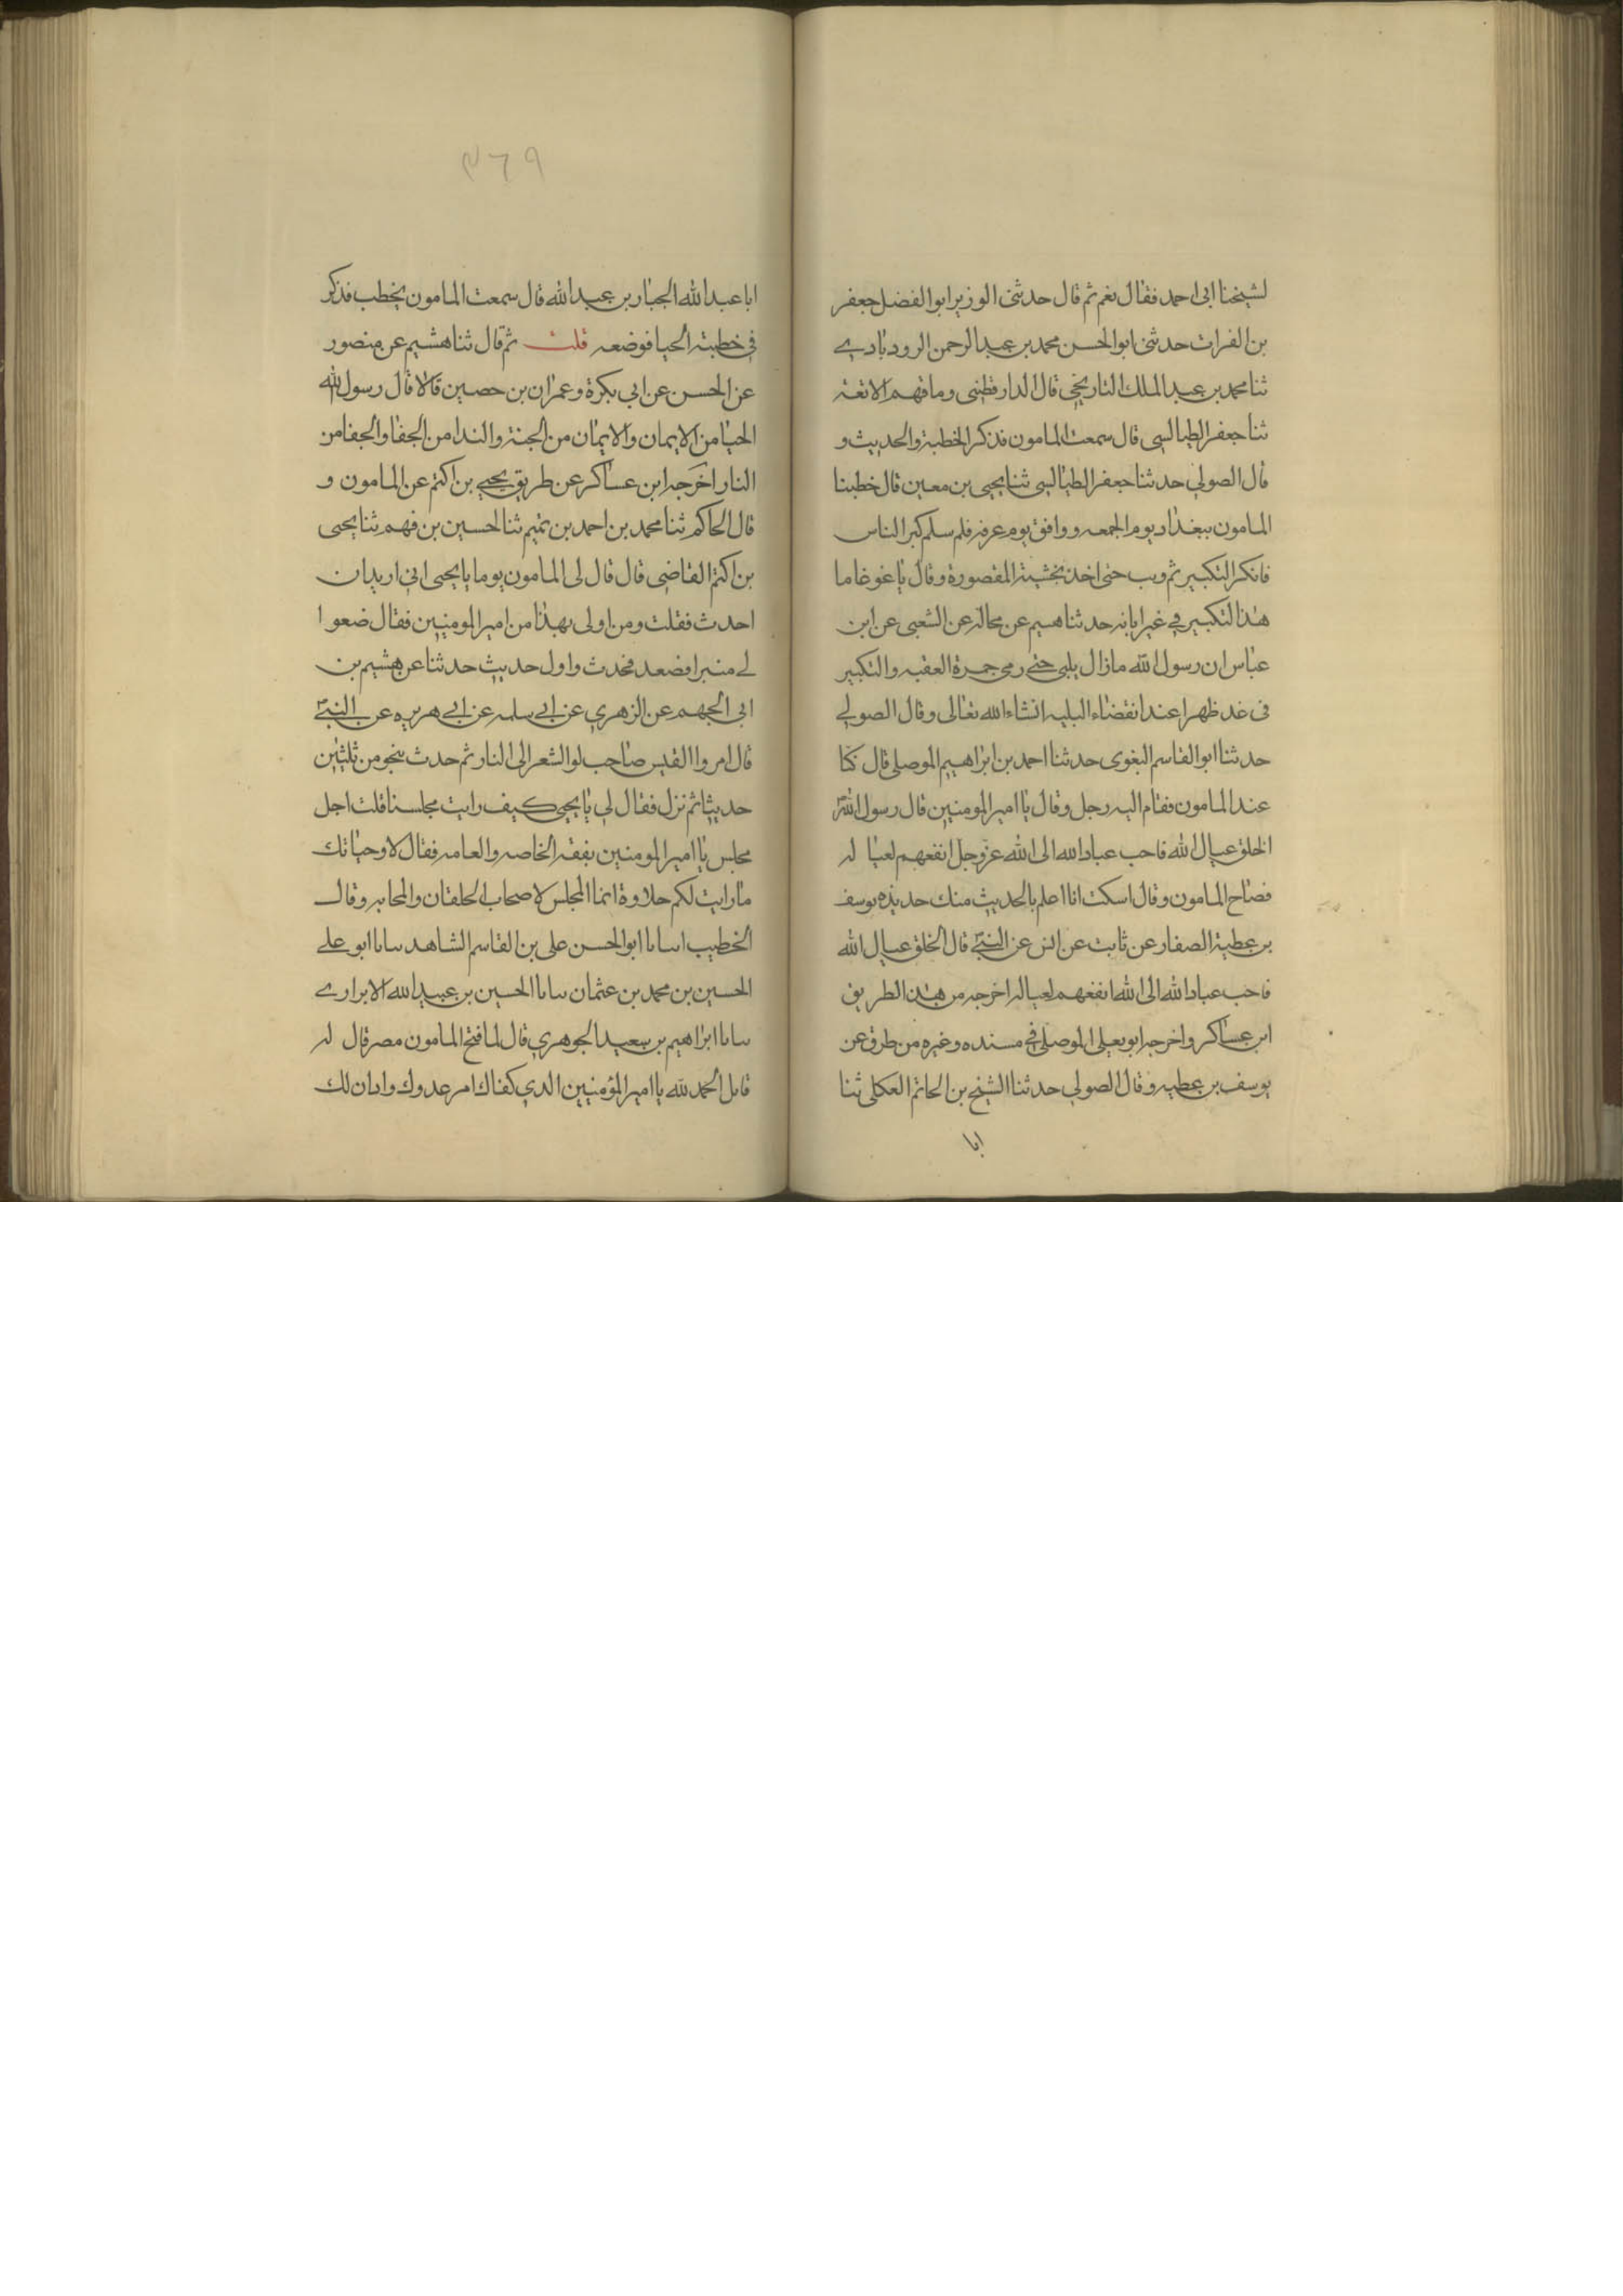 لشيخنا ابى احمد فقال نعم ثم قال حدثنى الوزير ابو الفضل جعفر
بن الفرات حدثنى ابو الحسن محمد بن عبد الرحمن الرودبادي
ثنا محمد بن عبد الملك التاريخي قال الدارقطنى وما فهم الا ثقة
ثنا جعفر الطيالسى قال سمعت المامون فذكر الخطبة والحديث و
قال الصولي حدثنا جعفر الطيالسى ثنا يحيى بن معين قال خطبنا
المامون ببغداد يوم الجمعه ووافق يوم عرفه فلم سلم كبر الناس
فانكر التكبير ثم وبب حتى اخذ بخشبة المقصورة وقال يا غوغا ما
هذا لتكبير في غير ابانه حدثنا هسيم عن مجالد عن الشعبى عن ابن
عباس ان رسول الله مازال يلبى حتى رمى جمرة العقبه والتكبير
فى غد ظهرا عند انقضاء البليه انشاء الله تعالى وقال الصولي
حدثنا ابو القاسم البغوى حدثنا احمد بن ابراهيم الموصلى قال كنا
عند المامون فقام اليه رجل وقال يا امير المومنين قال رسول الله
الخلق عيال الله فاحب عباد الله الى الله عز وجل انفعهم لعيا له
فصاح المامون وقال اسكت انا اعلم بالحديث منك حديثه يوسف
بن عطية الصفار عن ثابت عن انس عن النبي قال الخلق عيال الله
فاحب عباد الله الى الله انفعهم لعياله اخرجه من هذا الطريق
ابن عساكر واخرجه ابو يعلى الموصلى في مسنده وغيره من طرق عن
يوسف بن عطيه وقال الصولي حدثنا الشيخ بن الحاتم العكلى ثنا
ابا
٣٦٩
ابا عبد الله الجبار بن عبد الله قال سمعت المامون يخطب فذكر
في خطبته الحيا فوضعه قلت ثم قال ثنا هشيم عن منصور
عن الحسن عن ابي بكرة وعمران بن حصين قالا قال رسول الله
الحيا من الايمان والايمان من الجنة والندا من الجفا والجفا من
النار اخرجه ابن عساكر عن طريق يحيى بن اكثم عن المامون و
قال الحاكم ثنا محمد بن احمد بن تميم ثنا الحسين بن فهم ثنا يحيى
بن اكثم القاضى قال قال لى المامون يوما يا يحيى انى اريد ان
احدث فقلت ومن اولى بهذا من امير المومنين فقال ضعوا
لي منبرا فصعد فحدث واول حديث حدثنا عن هشيم بن
ابى الجهم عن الزهري عن ابي سلمه عن ابي هريره عن النبي
قال امروا القيس صاحب لوا الشعر الى النار ثم حدث بنحو من ثلثين
حديثا ثم نزل فقال لي يا يحيى كيف رايت مجلسنا قلت اجل
مجلس يا امير المومنين بفقه الخاصه والعامه فقال لا وحياتك
ما رايت لكم حلاوة انما المجلس لاصحاب الخلقان والمحابر وقال
الخطيب اسانا ابو الحسن على بن القاسم الشاهد سانا ابو علي
الحسين بن محمد بن عثمان سانا الحسين بن عبيد الله الابراري
سانا ابراهيم بن سعيد الجوهري قال لما فتح المامون مصر قال له
قايل الحمد لله يا امير المؤمنين الذي كفاك امر عدوك وادان لك